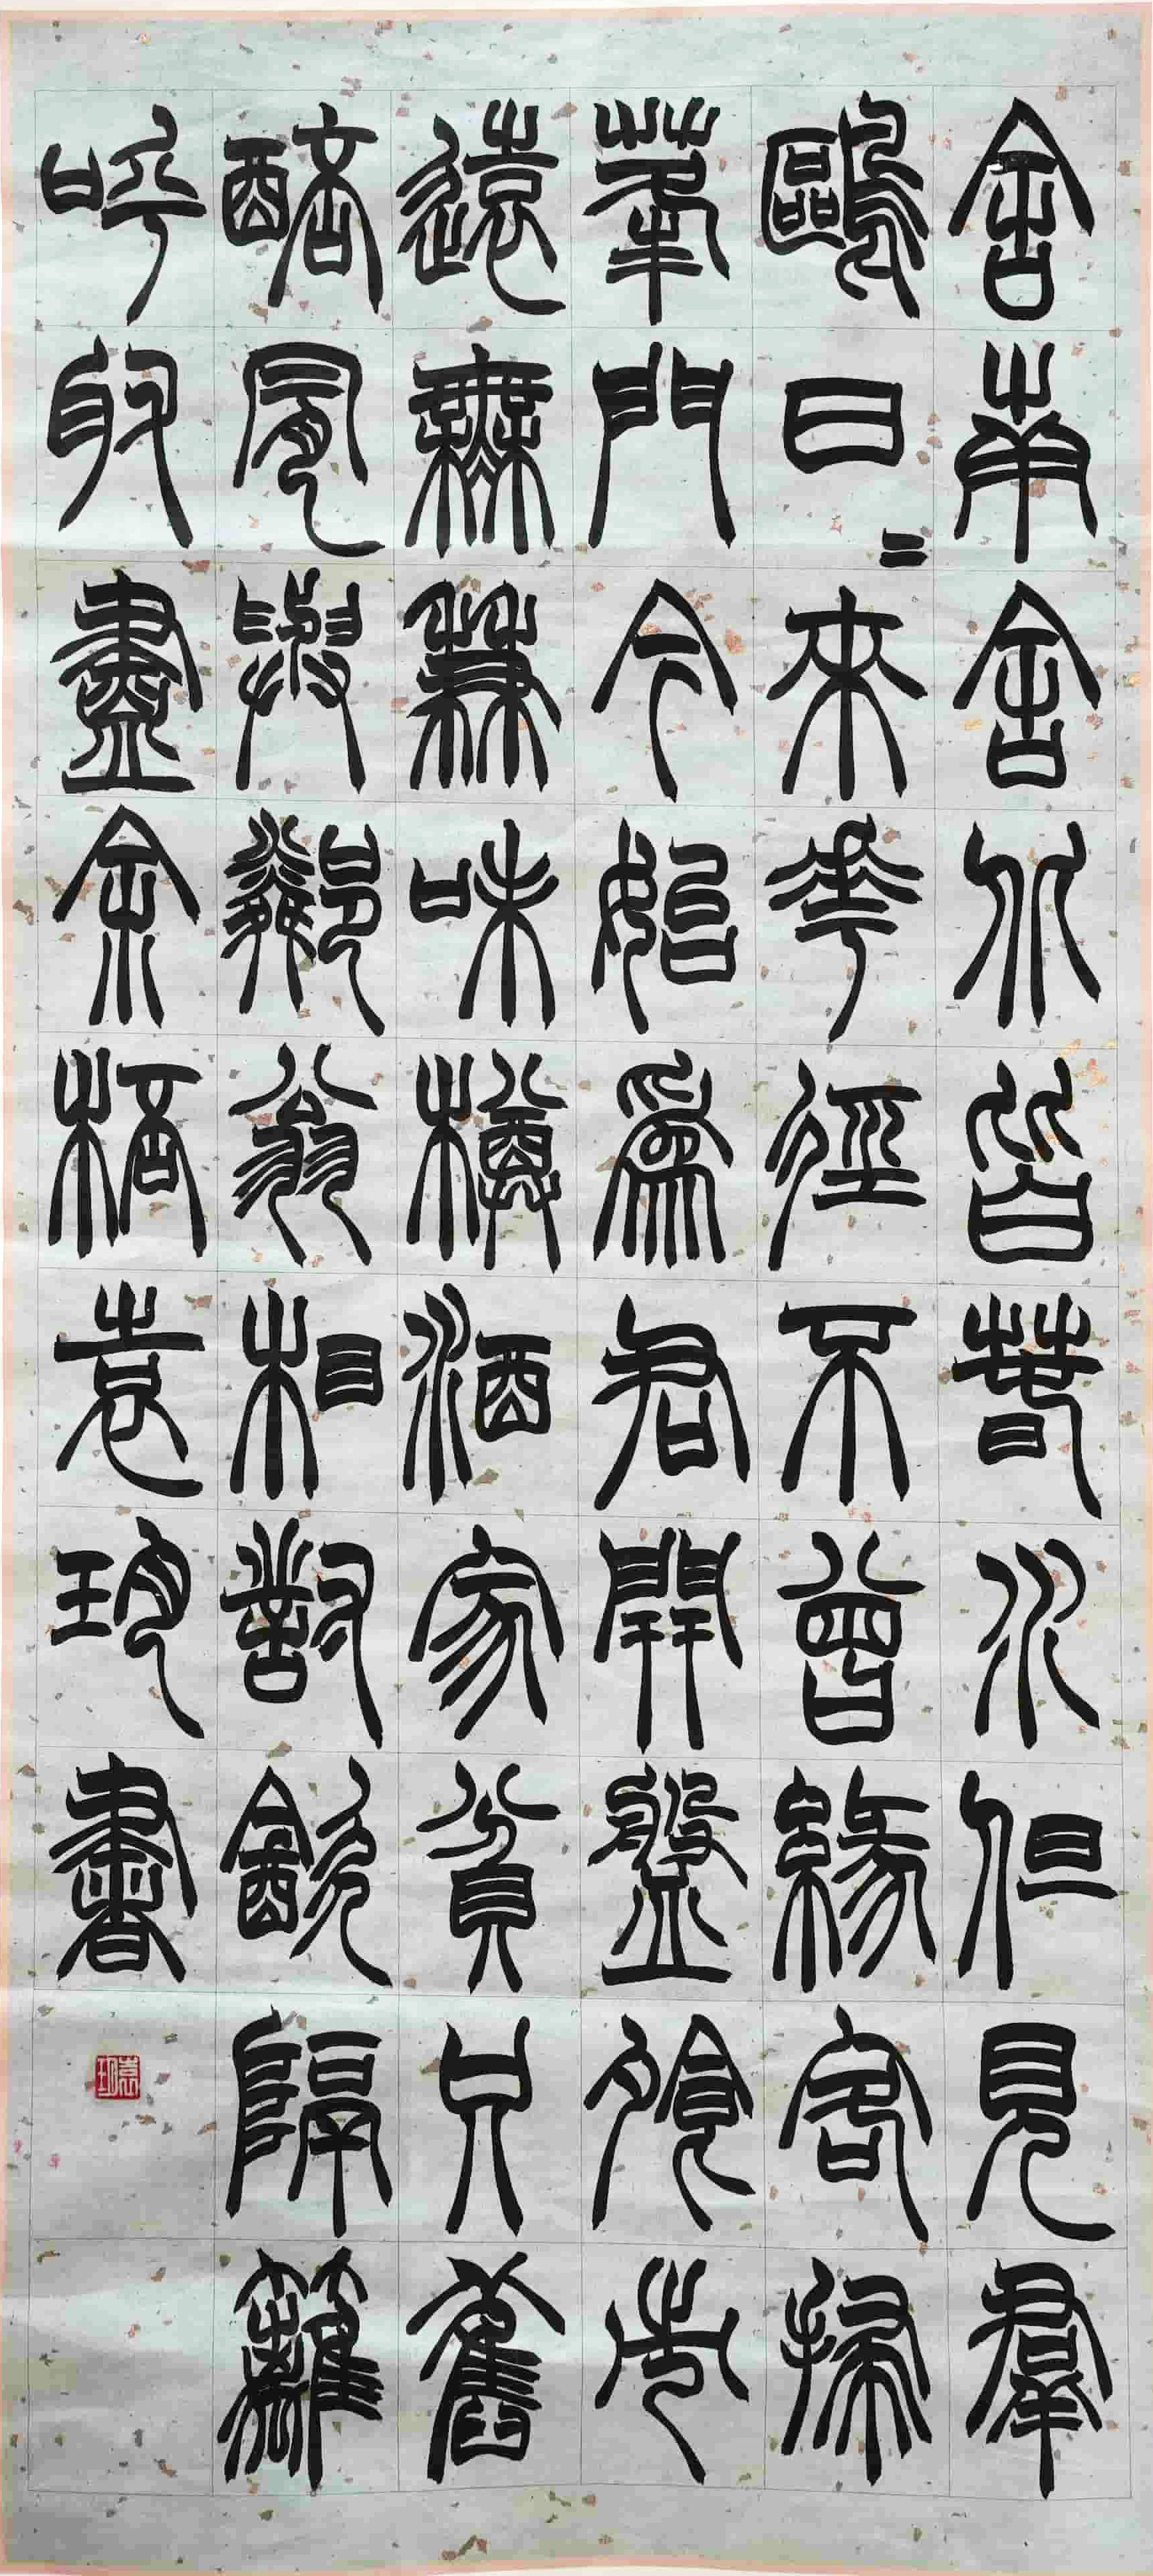 舍南舍北皆春水但見羣
鷗日〻來花徑不曾緣客掃
蓬門今始爲君開盤飧市
遠無兼味樽酒家貧只舊
醅肯與鄰翁相對飲隔籬
呼取盡余桮袁書